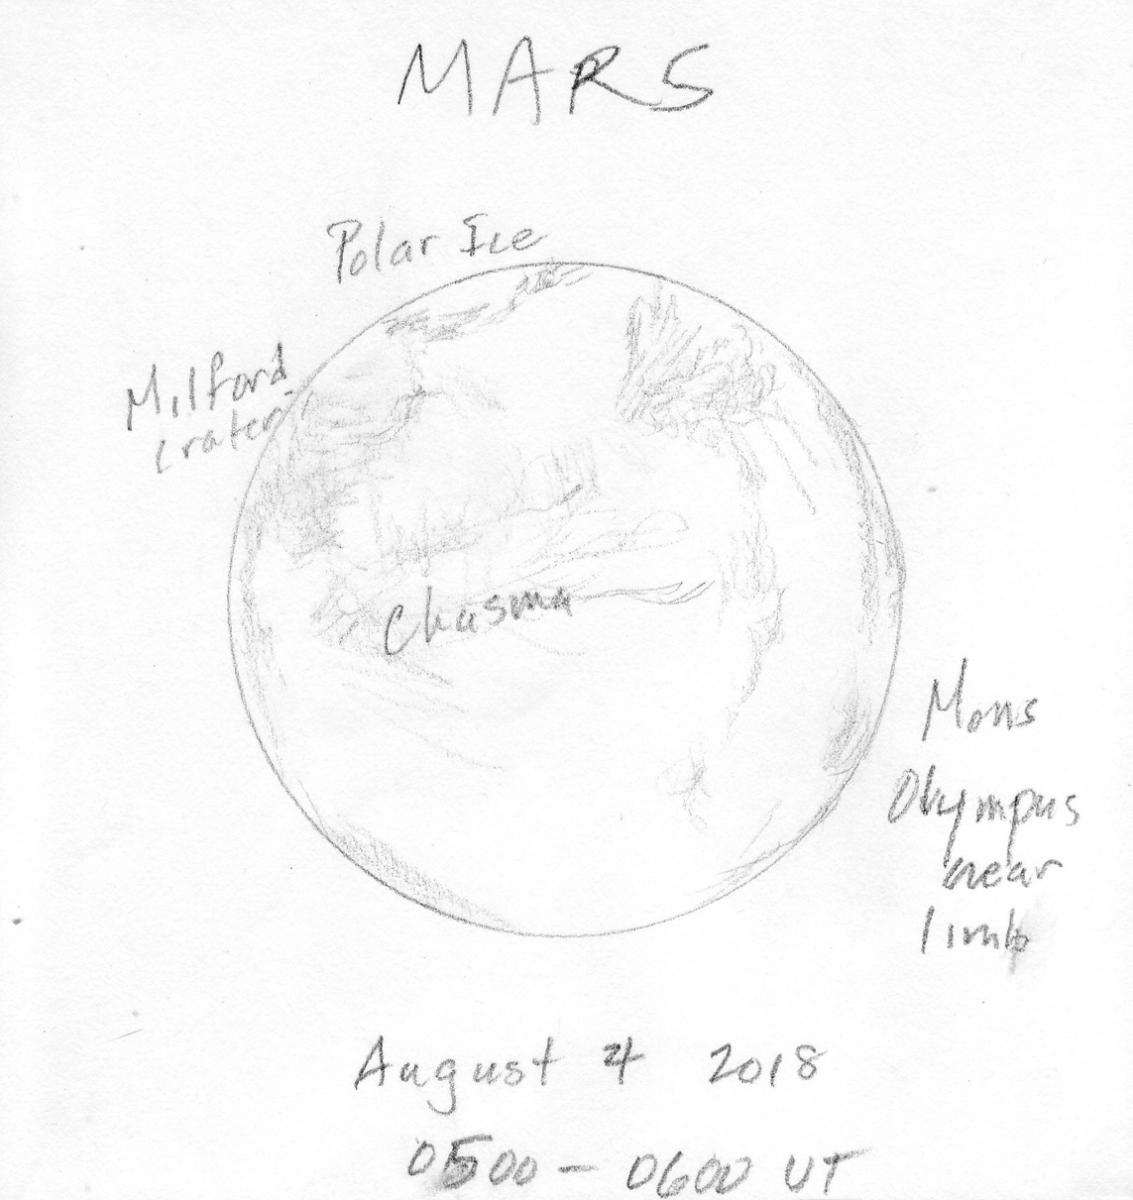 MARS
Polar Ice
Milford
crater
Chasma
Mons
Olympus
near
limb
August 4 2018
0500 - 0600 UT